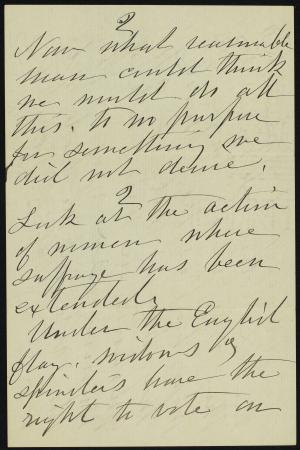 2
Now what reasonable
man could think
we would do all
this. to no purpose
for something we
did not desire.
2
Look at the action
of women where
suffrage has been
extended,
Under the English
flag. widows &
spinsters have the
right to vote on